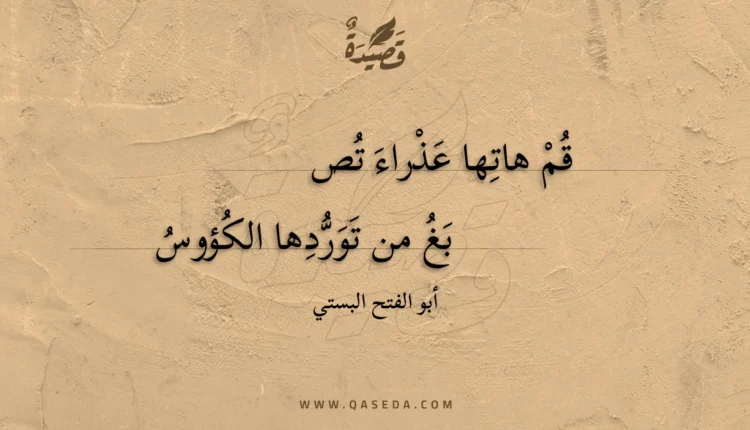 قَصِيْدَةٌ
قُمْ هاتِها عَذْراءَ تُص
بَغُ من تَوَرُّدِها الكُؤوسُ
أبو الفتح البستي
WWW.QASEDA.COM